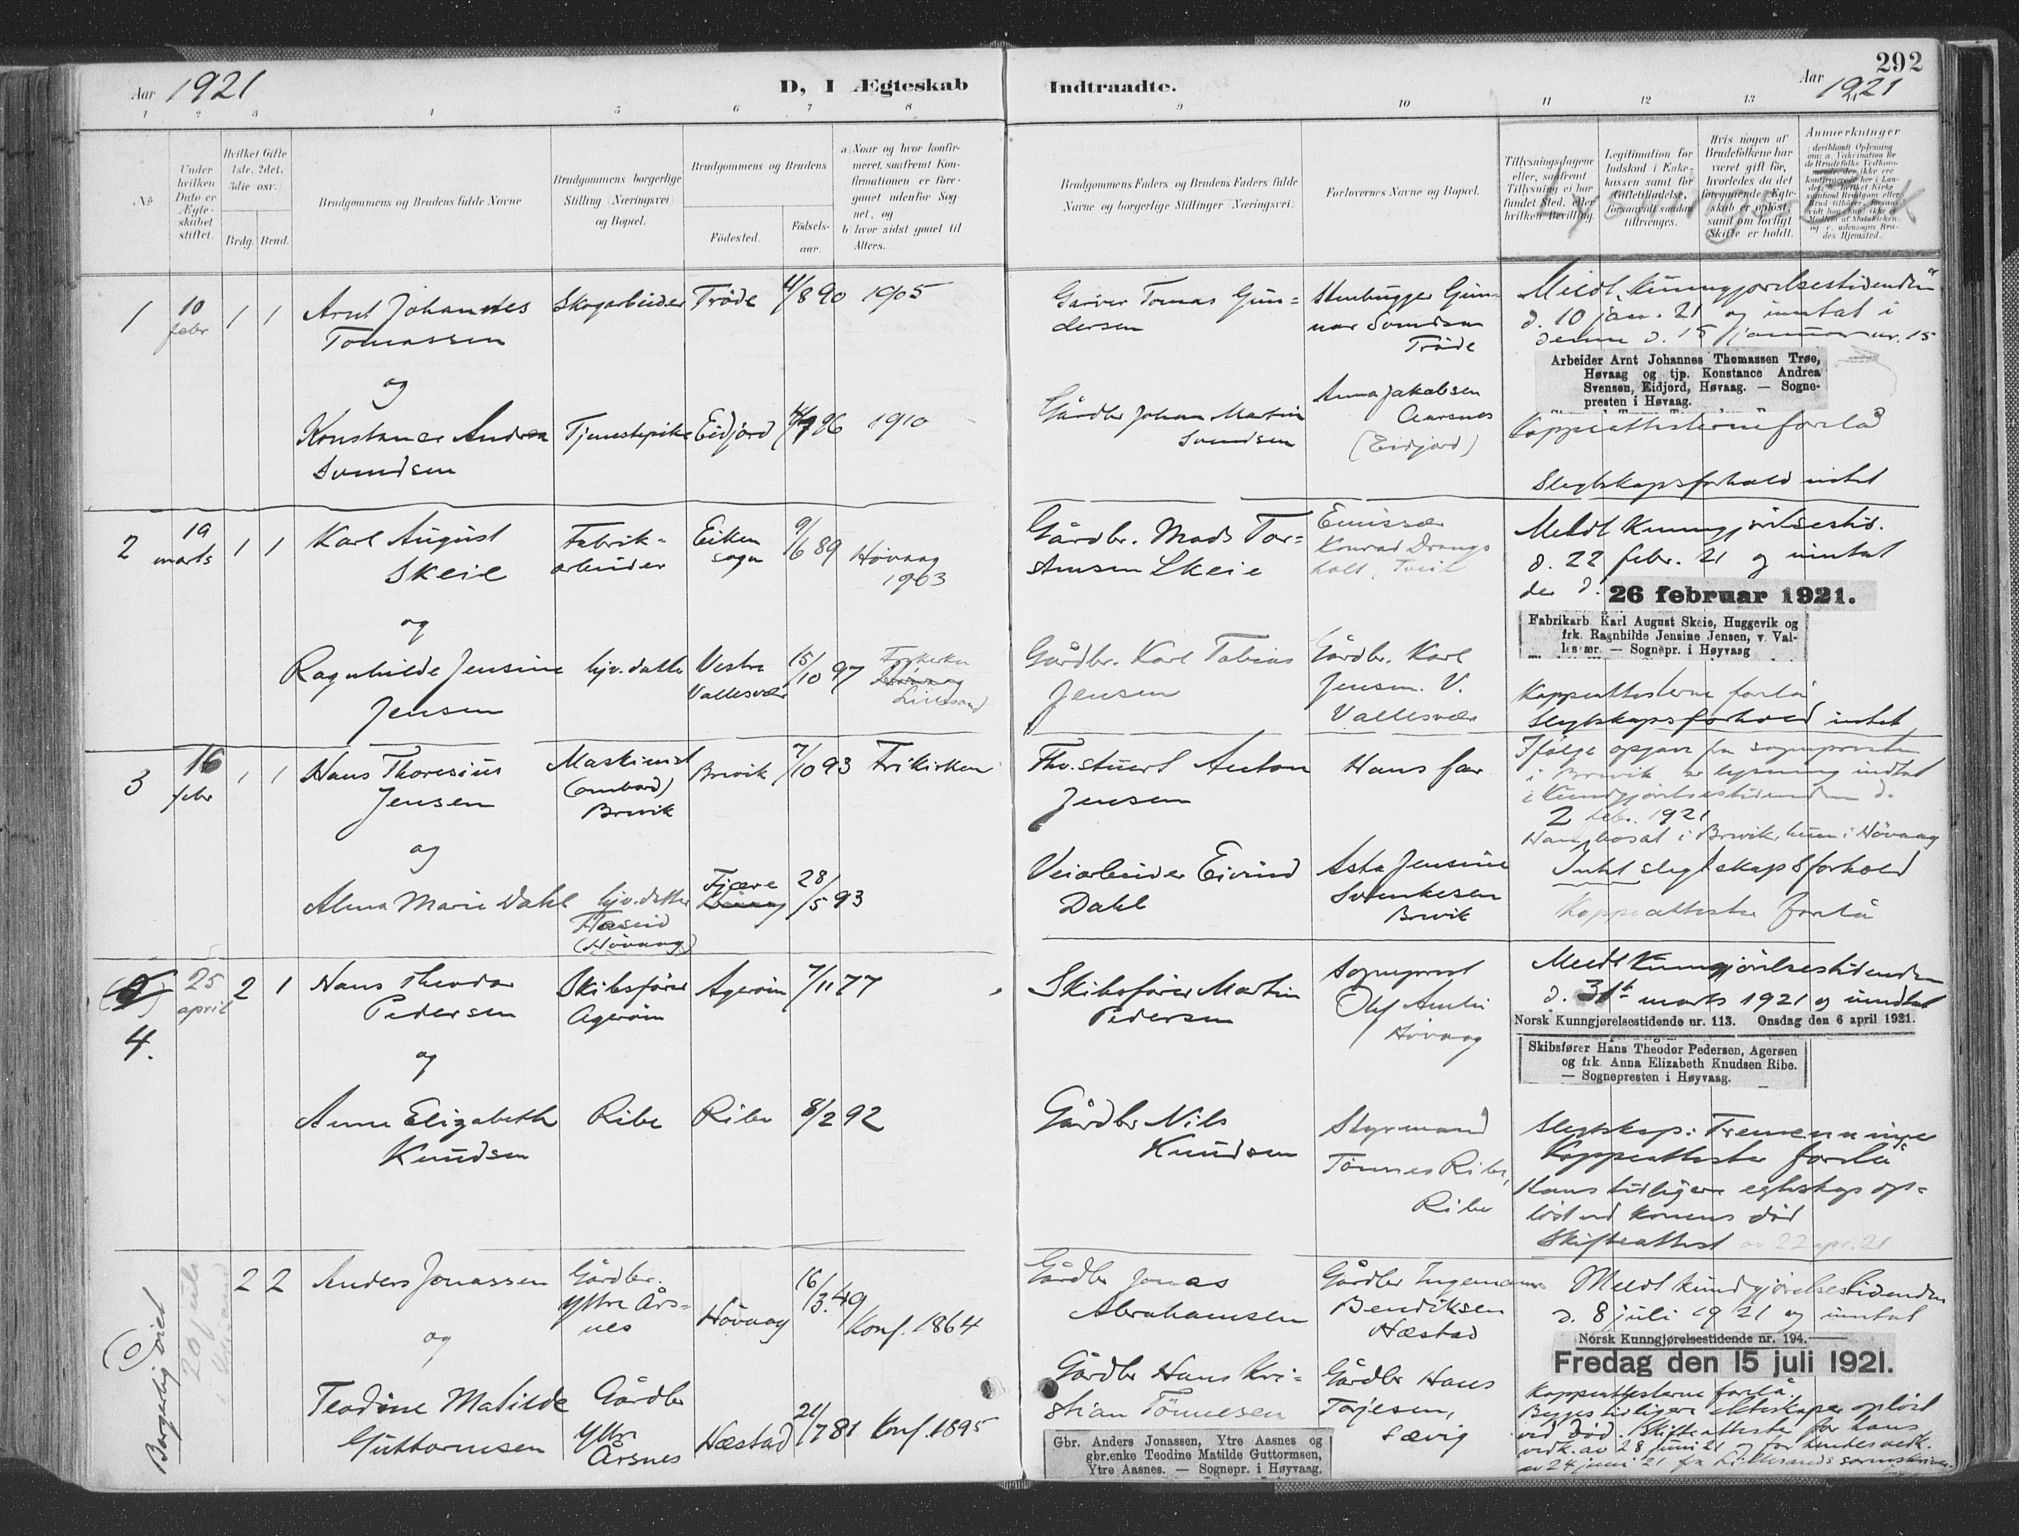 292
Aar 1921
D, I Ægteskab
Indtraadte.
Aar 1921
1 2 3 4 5 6 7 8 9 10 11 12 13
No
Under hvilken Dato er Ægteskabet stiftet.
Hvilket Gifte 1ste, 2det, 3die osv.
Brdg. Brud.
Brudgommens og Brudens fulde Navne
Brudgommens borgerlige Stilling (Næringsvei) og Bopæl.
Brudgommens og Brudens
Fødested.
Fødsels-aar.
a Naar og hvor konfirmeret, saafremt Konfirmationen er foregaaet udenfor Sognet, og
b hvor sidst gaaet til Alters.
Brudgommens Faders og Brudens Faders fulde Navne og borgerlige Stillinger (Næringsvei)
Forlovernes Navne og Bopæl.
Tillysningsdagene eller, saafremt Tillysning ei har fundet Sted, efter hvilken Bevilling.
Legitimation for Indskud i Enkekassen samt for Giftetilladelse, forsaavidt saadan tiltrænges.
Hvis nogen af Brudefolkene har været gift før, hvorledes da det foregaaende Ægteskab er opløst, samt om lovligt Skifte er holdt.
Anmerkninger
1 10 febr 1 1 Arnt Johannes Tomassen Skogarbeider Trøde 11/8 90 1905
Garver Tomas Gundersen
Stenhugger Gunnar Svendsen Trøde
Meldt Kunngjørelsestidenden
d. 10 jan. 21 og inntat i
denne d. 15 januar nr. 15
Arbeider Arnt Johannes Thomassen Trøe,
Høvaag og tjp. Konstance Andrea
Svensen, Eidjord, Høvaag. — Sogne-
presten i Høvaag.
og
Konstance Andrea Svendsen Tjenestepike Eidjord 96 1910
Gårdbr Johan Martin Svendsen
Anna Jakobsen Aarsnes (Eidjord)
Koppeattesterne forelå
Slegtskapsforhold intet
2 19 marts 1 1 Karl August Skeie Fabrik-arbeider Eiken sogn 9/6 89 Høvaag 1903
Gårdbr. Mads Torstensen Skeie
Emissær Konrad Drangsholt, Tveit
Meldt Kunngjørelsestid.
d. 22 febr. 21 og inntat
der d.
26 februar 1921.
Fabrikarb. Karl August Skeie, Huggevik og
frk. Ragnhilde Jensine Jensen, v. Val-
lesær. — Sognepr. i Høyvaag
og
Ragnhilde Jensine Jensen hjv. datter Vestre Vallesvær 15/10 97 Lillesand
Gårdbr. Karl Tobias Jensen
Gårdbr. Karl Jensen. V. Vallesvær
Koppeattesterne forelå
Slegtskapsforhold intet
3 16 febr 1 1 Hans Thoresius Jensen Maskinist (ombord) Brevik Brevik 7/10 93 Frikirken
Anton Jensen
Hans far
Ifølge opgave fra sognepresten
i Brevik er lysning indtat
i Kundgjørelsestidenden d.
2 febr. 1921
Han bosat i Brevik, hun i Høvaag
og
Alma Marie Dahl hjv. datter (Høvaag) Fjære 28/5 93
Veiarbeider Eivind Dahl
Asta Jensine Svenkesen Brevik
Intet slegtskapsforhold
Koppeattester forelå
4. 25 april 2 1 Hans Theodor Pedersen Skibsfører Agerøin Agerøin 7/11 77
Skibsfører Martin Pedersen
Sogneprest Olaf Høvaag
Meldt Kunngjørelsestidenden
d. 31te marts 1921 og inndtat
Norsk Kunngjørelsestidende nr. 113. Onsdag den 6 april 1921.
Skibsfører Hans Theodor Pedersen, Agerøen
og frk. Anna Elizabeth Knudsen Ribe.
— Sognepresten i Høyvaag.
og
Anna Elizabeth Knudsen Ribe Ribe 8/2 92
Gårdbr Nils Knudsen
Styrmand Tønnes Ribe, Ribe
Slegtskap: Tremenninge
Koppeattester forelå
Hans tidligere egteskap op-
løst ved konens død
Skifteattest av 22 apr. 21
Borgerlig viet 20 juli
2 2 Anders Jonassen Gårdbr. Yttre Årsnes Høvaag 16/3.49 Konf. 1864
Gårdbr Jonas Abrahamsen
Gårdbr Ingemann Bendiksen Næstad
Meldt Kundgjørelsestidenden
d. 8 juli 1921 og inntat
Norsk Kunngjørelsestidende nr. 194.
Fredag den 15 juli 1921.
og
Teodine Matilde Guttormsen Gårdbr Yttre Årsnes Næstad 21/7 81 Konf. 1895
Gårdbr Hans Kristian Tønnesen
Gårdbr Hans Terjesen, Sævig
Koppeattesterne forelå.
Begges tidligere ekteskaper opløst
ved død. Skifteattester for hans
vedk. av 28 juni 21 og for hendes vedk.
av 24 juni 21 fra Lillesands sorenskriver
Gbr. Anders Jonassen, Ytre Aasnes og
gbr.enke Teodine Matilde Guttormsen,
Ytre Aasnes. — Sognepr. i Høyvaag.